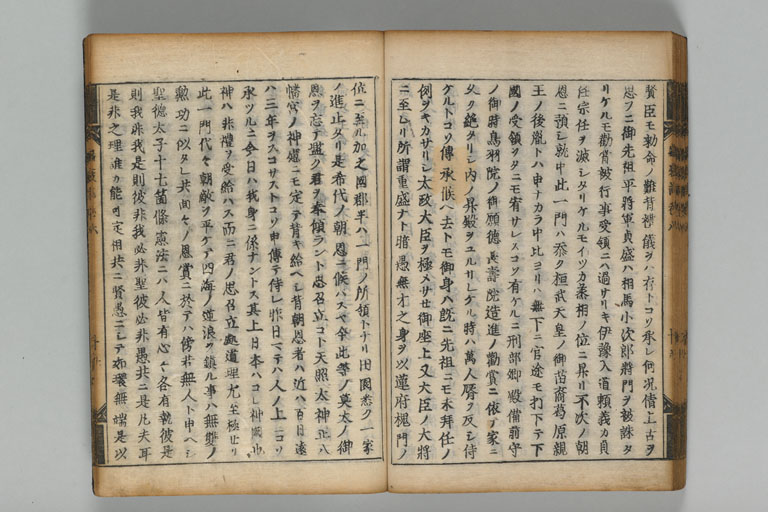 賢臣モ勅命ノ難背禮儀ヲハ存トコソ承レ何况倩上古ヲ
思フニ御先祖平將軍貞盛ハ相馬小次郎將門ヲ被誅タ
リケルモ勸賞被行事受領ニハ過サリキ伊豫入道頼義カ貞
任宗任ヲ滅シタリケルモイツカ丞相ノ位ニ昇リ不次ノ朝
恩ニ預シ就中此一門ハ忝ク桓武天皇ノ御苗裔葛原親
王ノ後胤トハ申ナカラ中比ヨリハ無下ニ官途モ打下テ下
國ノ受領ヲタニモ宥サレスコソ有ケルニ刑部卿殿備前守
ノ御時鳥羽院ノ御願德長壽院造進ノ勸賞ニ依テ家ニ
久ク絶タリシ内ノ昇殿ヲユルサレケル時ハ萬人脣ヲ反シ侍
ケルトコソ傳承候ヘ去トモ御身ハ既ニ先祖ニモ未拜任ノ
例ヲキカサリシ太政大臣ヲ極メサせ御座上又大臣ノ大將
ニ至レリ所謂重盛ナト暗愚無才之身ヲ以蓮府槐門ノ
位ニ至ル加之國郡半ハ一門ノ所領トナリ田園悉ク一家
ノ進止タリ是希代ノ朝恩ニ候ハスヤ今此等ノ莫太ノ御
恩ヲ忘テ濫ク君ヲ奉傾ラント思召立コト天照太神正八
幡宮ノ神慮ニモ定テ背キ給ヘシ背朝恩者ハ近ハ百日遠
ハ三年ヲスコサストコソ申傳テ侍レ昨日マテハ人ノ上ニコソ
承ツルニ今日ハ我身ニ係ナントス其上日本ハコレ神國也
神ハ非禮ヲ受給ハス而ニ君ノ思召立處道理尤至極せリ
此一門代々朝敵ヲ平ケテ四海ノ逆浪ヲ鎮ル事ハ無雙ノ
勲功ニ似タレ共面々ノ恩賞ニ於テハ傍若無人ト申ヘシ
聖德太子十七箇條憲法ニハ人皆有心心各有執彼是
則我非我是則彼非我必非聖彼必非愚共ニ是凡夫耳
是非之理誰カ能可定相共ニ賢愚ニシテ如環無端是以